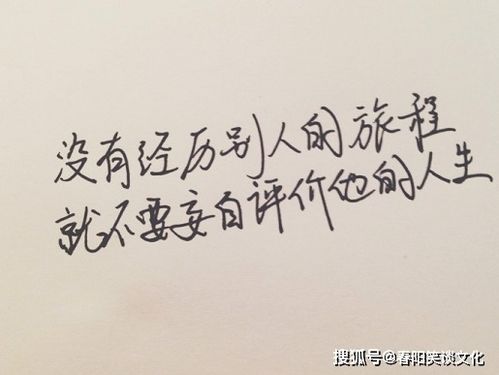 没有经历别人的旅程
就不要妄自评价他的人生
搜狐号@春阳笑谈文化